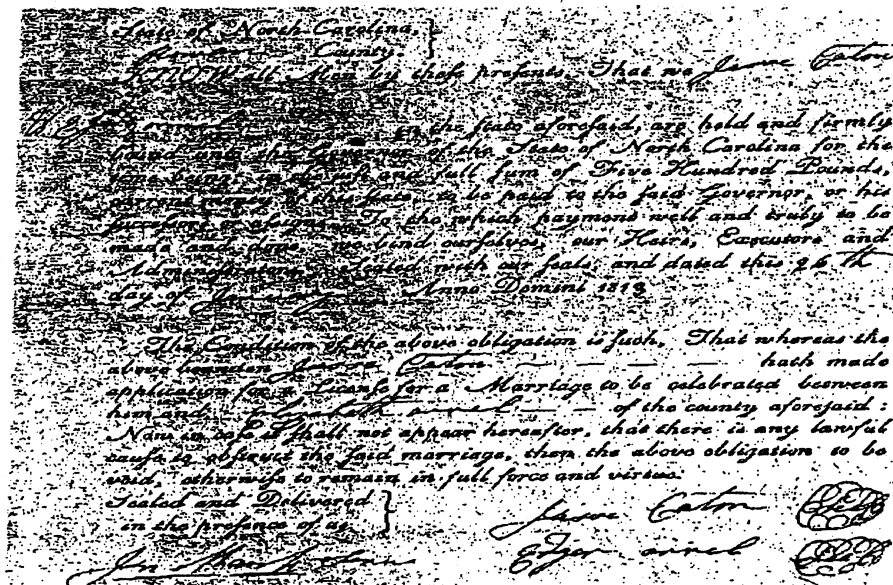 State of North-Carolina,
County
KNOW all Men by thefe prefents, That we Eaton
in the State aforefaid, are held and firmly
bound unto the Governor of the State of North Carolina for the
time being, in the juft and full fum of Five Hundred Pounds,
current money of this State, to be paid to the faid Governor, or his
fucceffors or affigns, To the which payment well and truly to be
made and done, we bind ourfelves, our Heirs, Executors and
Adminiftrators, Sealed with our feals and dated this 26th
day of Anno Domini 1813
The Condition of the above obligation is fuch, That whereas the
above bounden Eaton hath made
application for a License for a Marriage to be celebrated between
him and Elizabeth arrel of the county aforefaid:
Now in cafe it fhall not appear hereafter, that there is any lawful
caufe to obftruct the faid marriage, then the above obligation to be
void, otherwife to remain in full force and virtue.
Sealed and Delivered
in the prefence of us
Eaton
arrel